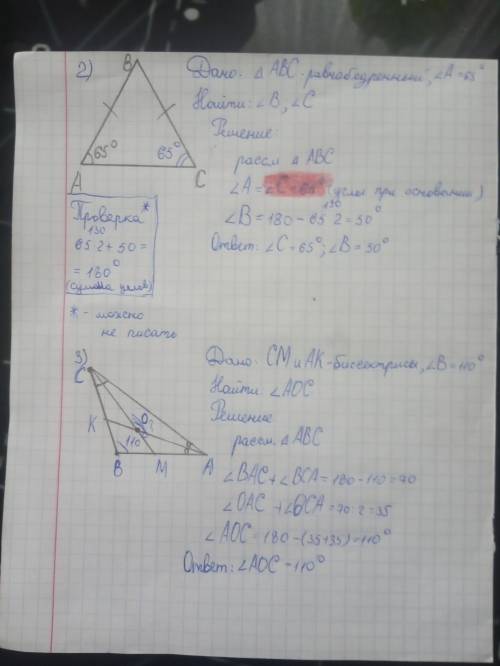 2)
B
65°
65°
A
C
Дано: △ ABC - равнобедренный, ∠A = 65°
Найти: ∠B, ∠C
Решение:
рассм △ ABC
∠A = ∠C = 65° (углы при основании)
130
∠B = 180 - 65·2 = 50°
Ответ: ∠C = 65°; ∠B = 50°
Проверка*
130
65·2 + 50 =
= 180°
(сумма углов)
* - можно
не писать
3)
C
K
O
?
110
B
M
A
Дано: CM и AK - биссектрисы, ∠B = 110°
Найти: ∠AOC
Решение
рассм. △ ABC
∠BAC + ∠BCA = 180 - 110 = 70
∠OAC + ∠OCA = 70:2 = 35
∠AOC = 180 - (35+35) = 110°
Ответ: ∠AOC = 110°